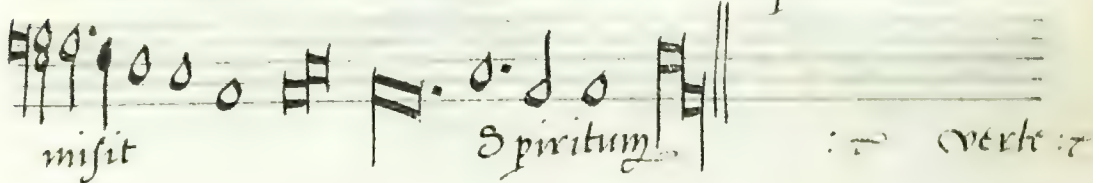 misit Spiritum :~ verte :~